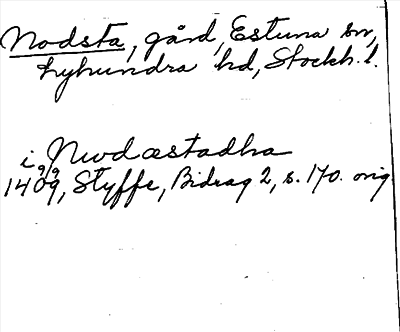 Nodsta, gård, Estuna sn,
Lyhundra hd, Stockh. l.
i Nwdæstadha
1409, Styffe, Bidrag 2, s. 170. orig